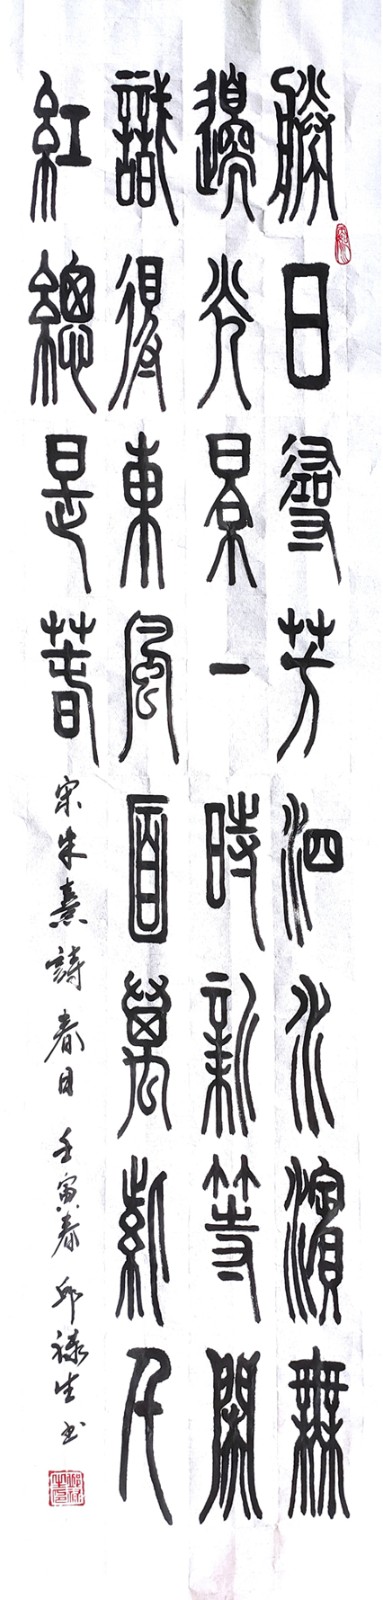 勝日尋芳泗水濱無
邊光景一時新等閑
識得東風面萬紫千
紅總是春
宋朱熹詩春日壬寅春邱祿生书